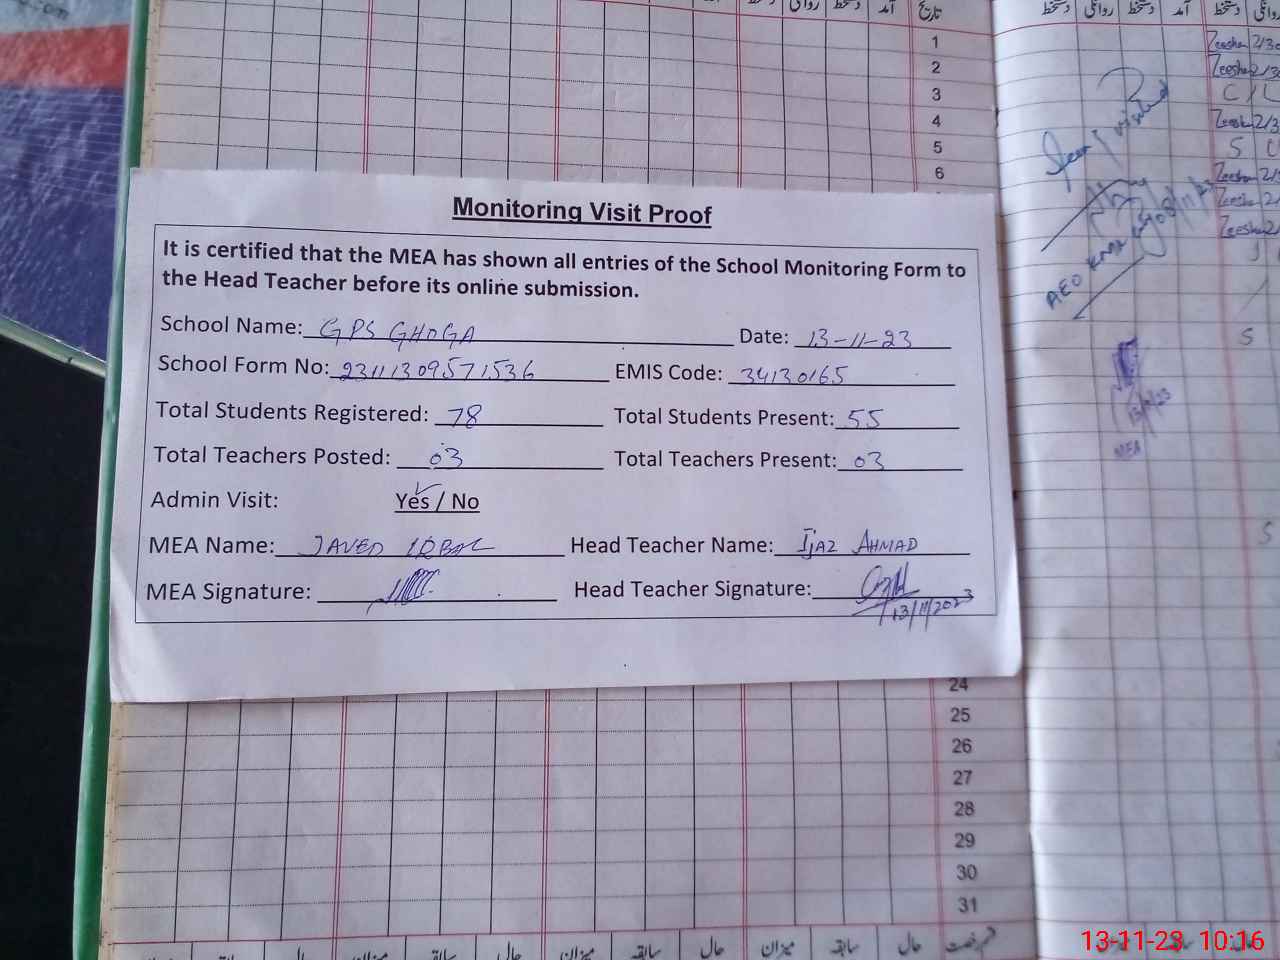 .com
تاریخ آمد دستخط روانگی دستخط
دستخط روانگی دستخط آمد دستخط روانگی
1
2
3
4
5
6
Zeeshan 2/30
Zeeshan 2/30
C / L
Zeeshan 2/3
S
Zeeshan
Zeeshan
Zeeshan
Seen & visited
AEO
08/11/23
S
13/11/23
MEA
S
Monitoring Visit Proof
It is certified that the MEA has shown all entries of the School Monitoring Form to
the Head Teacher before its online submission.
School Name: GPS GHOGA Date: 13-11-23
School Form No: 23111309571536 EMIS Code: 34130165
Total Students Registered: 78 Total Students Present: 55
Total Teachers Posted: 03 Total Teachers Present: 03
Admin Visit: Yes / No
MEA Name: JAVED IQBAL Head Teacher Name: IjAZ AHMAD
MEA Signature: Head Teacher Signature:
13/11/2023
24
25
26
27
28
29
30
31
حال سابقہ میزان حال سابقہ میزان حال سابقہ
13-11-23 10:16